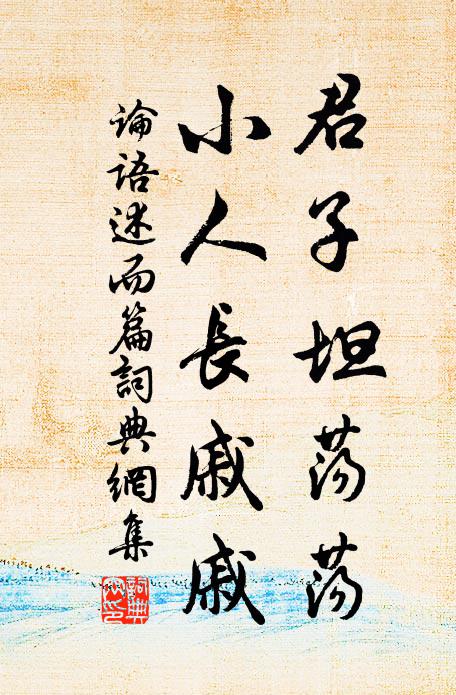 君子坦荡荡
小人長戚戚
論語述而篇詞典網集